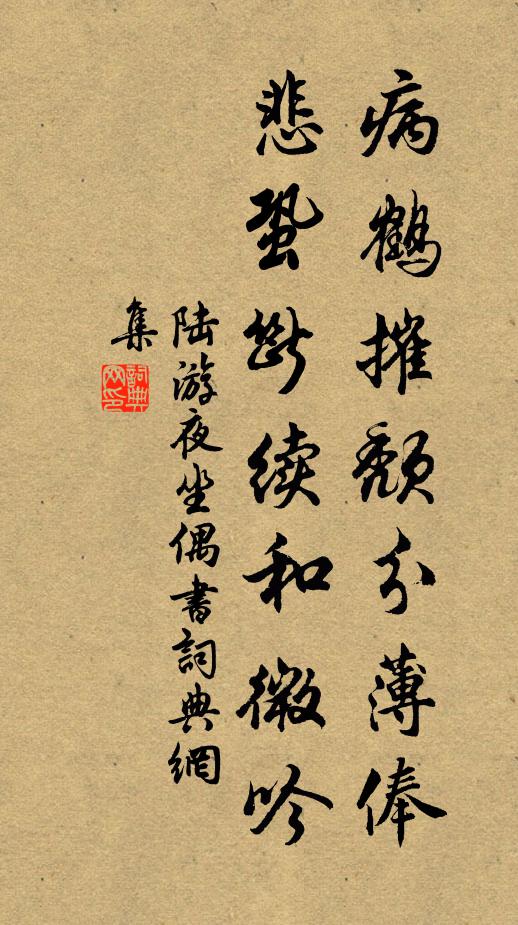 病鶴摧頹分薄俸
悲蛩斷續和微吟
陆游夜坐偶書詞典網
集
詞典
网印